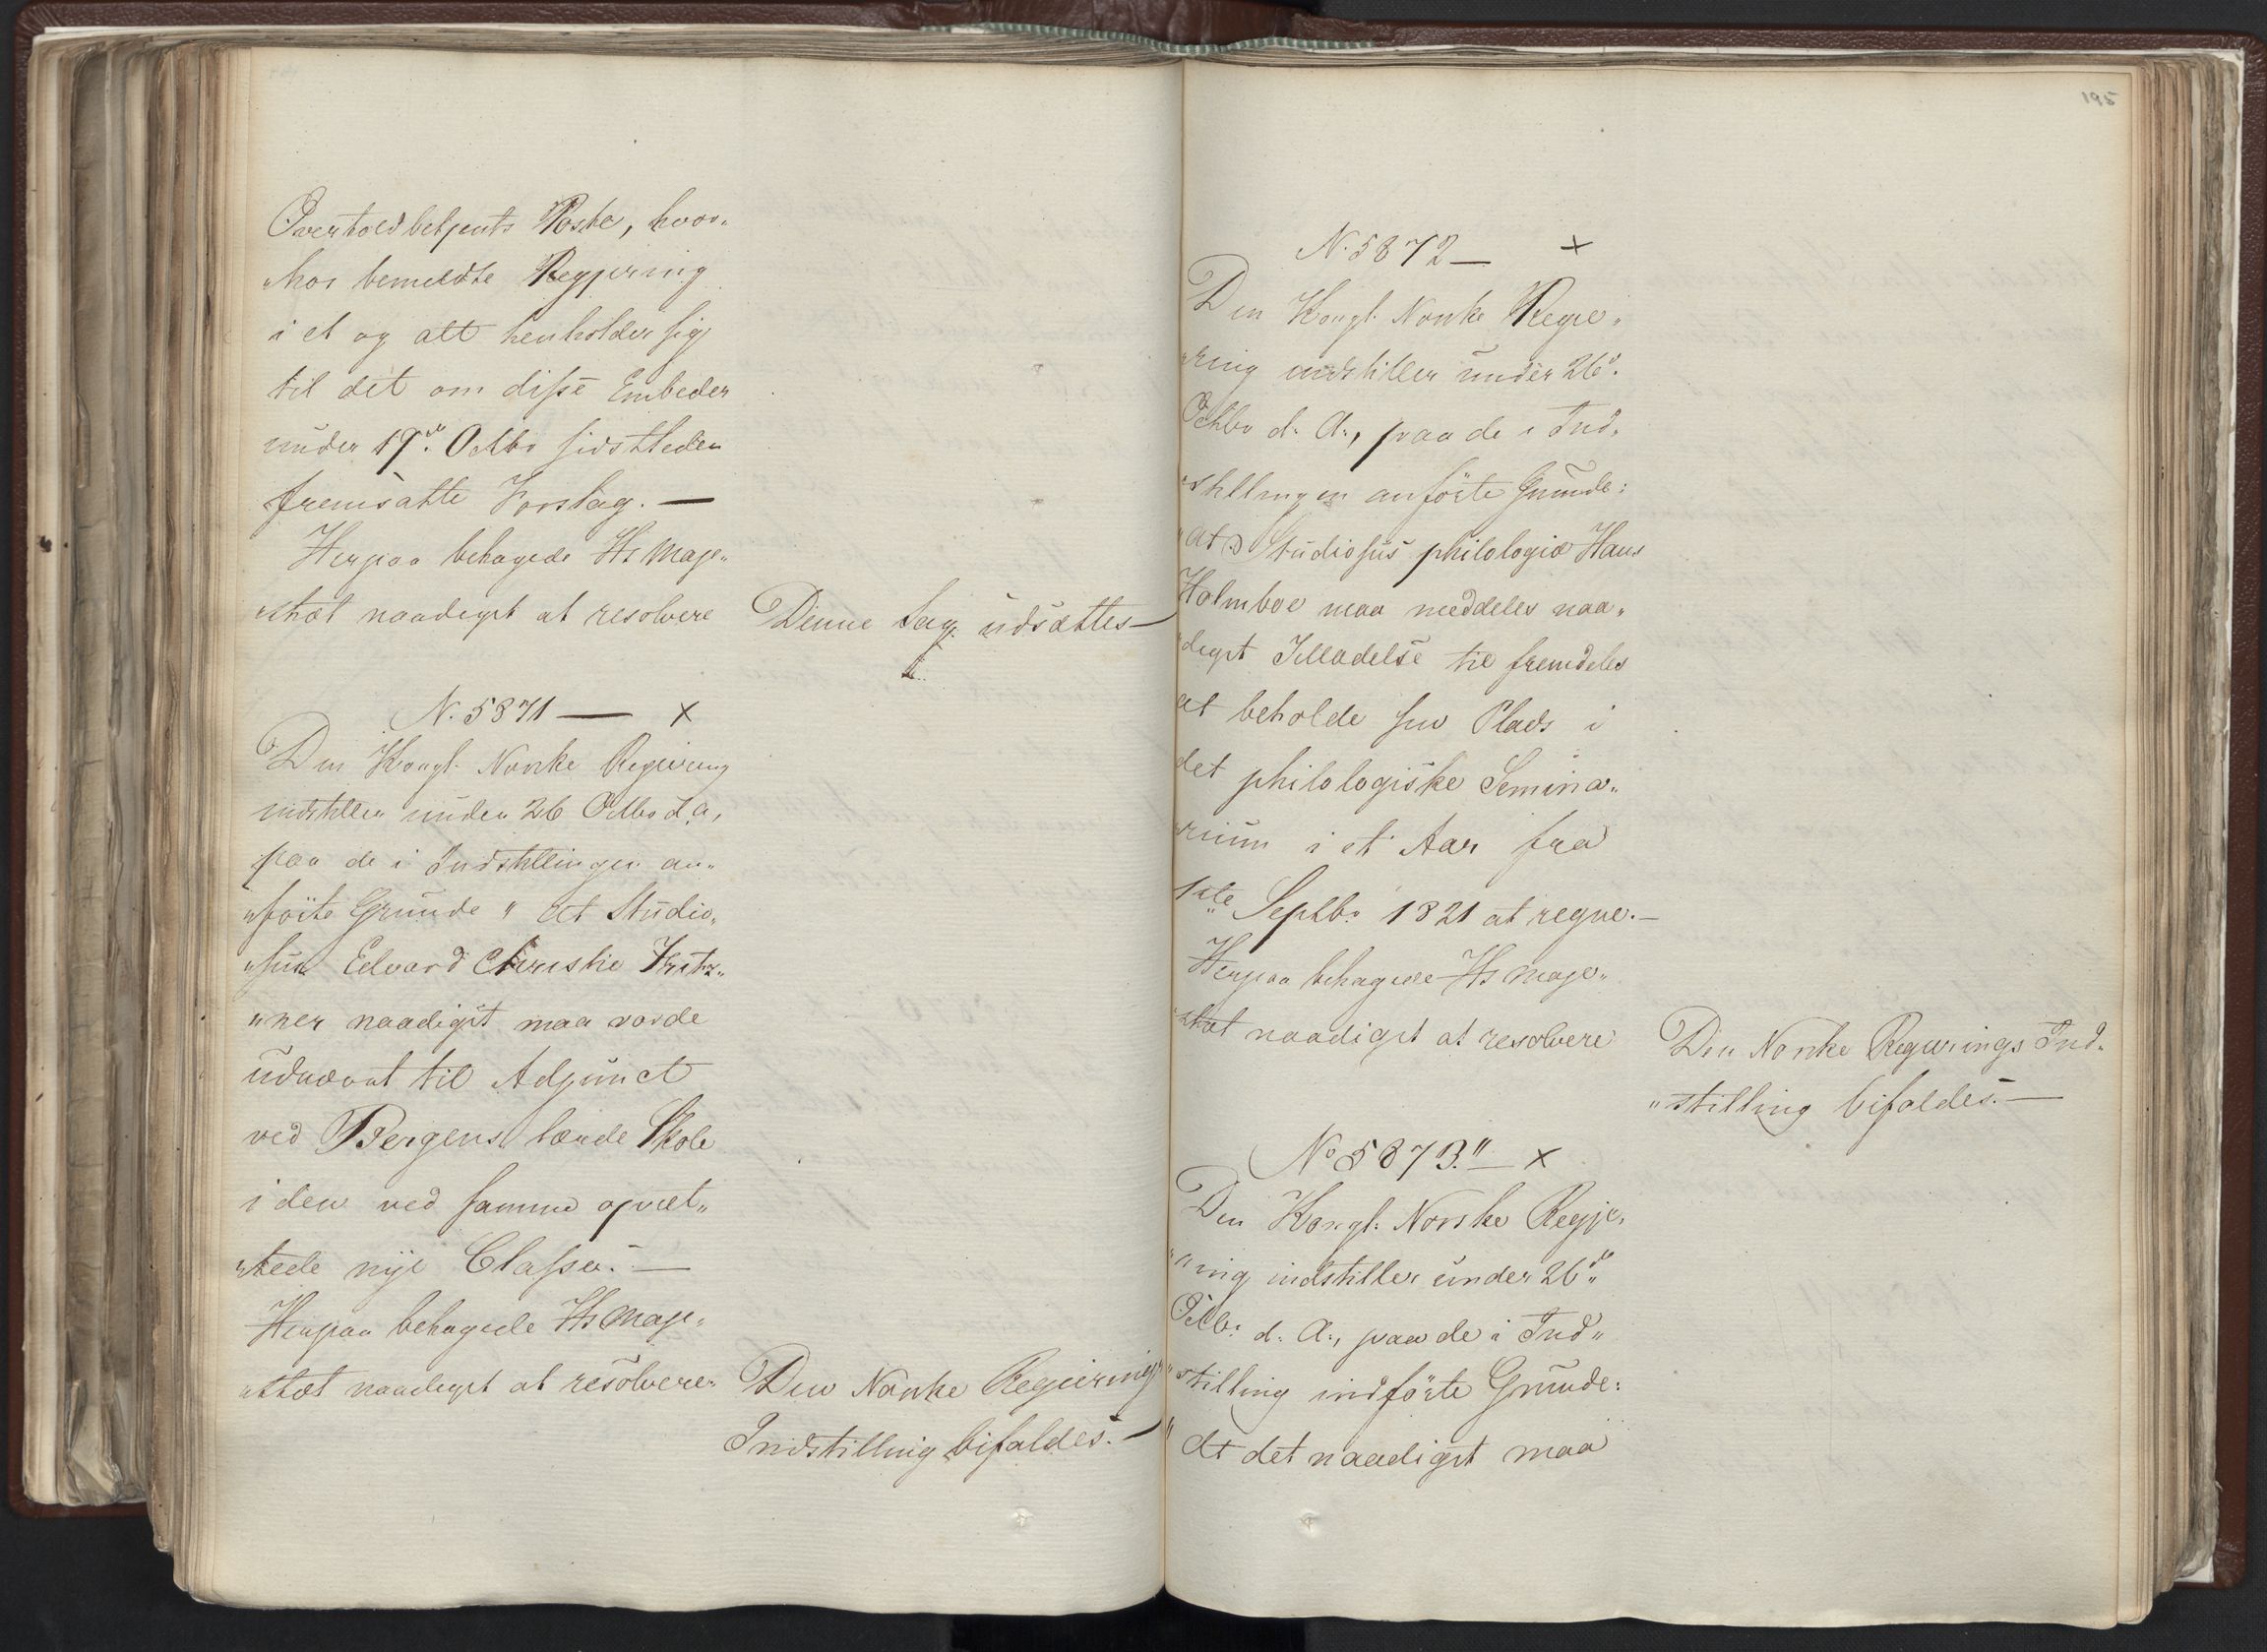 Overtoldbetjents Poste, hvor„
„hos bemeldte Regjering
i et og alt henholder sig
til det om disse Embeder
under 19de. Octbr sidstleden
fremsatte Forslag. —
Herpaa behagede Hs Maje„
„stæt naadigst at resolvere
Denne Sag udsættes —
N. 5871 — x
Den Kongl. Norske Regiering
indstiller under 26 Octbr d. a.,
paa de i Indstillingen an„
„förte Grunde „ At Studio„
„sus Edvard Christie Fritz„
„ner naadigst maa vorde
udnævnt til Adjunct
ved Bergens lærde Skole
i den ved samme opret„
„tede nye Classe. —
Herpaa behagede Hs Maje„
„stæt naadigst at resolvere
Den Norske Regierings
Indstilling bifaldes. —
195
N. 5872 — x
Den Kongl. Norske Regie„
„ring indstiller under 26de.
Octbr d. A., paa de i Ind„
„stillingen anförte Grunde:
„at Studiosus philologiæ Hans
Holmboe maa meddeles naa„
„digst Tilladelse til fremdeles
at beholde sin Plads i
det philologiske Semina„
„rium i et Aar fra
1ste Septbr 1821 at regne. —
Herpaa behagede Hs Maje„
„stæt naadigst at resolvere
Den Norske Regierings Ind„
„stilling bifaldes. —
No 5873." — x
Den Kongl. Norske Regje„
„ring indstiller under 26de„
Octbr. d. A., paa de i Ind„
„stilling indförte Grunde:
„At det naadigst maa